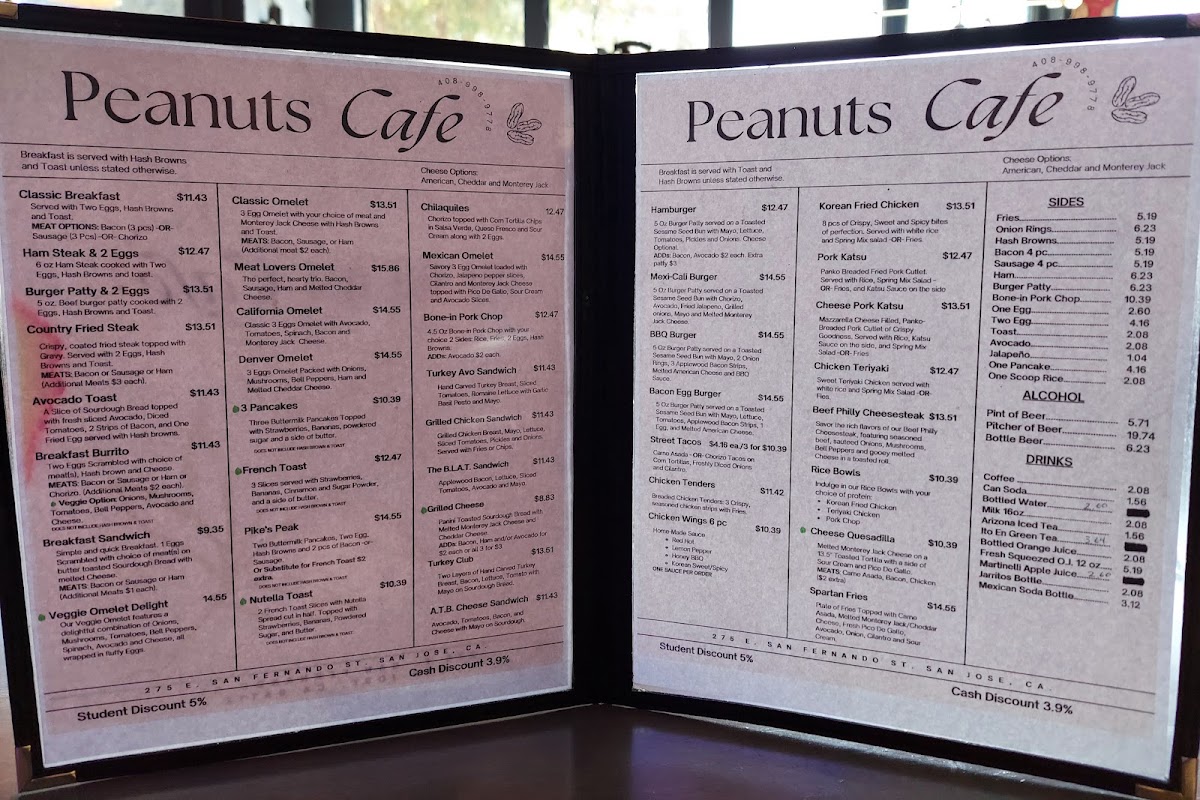 Peanuts Cafe
408-998-9778
Breakfast is served with Hash Browns
and Toast unless stated otherwise.
Cheese Options:
American, Cheddar and Monterey Jack
Classic Breakfast $11.43
Served with Two Eggs, Hash Browns
and Toast.
MEAT OPTIONS: Bacon (3 pcs) -OR-
Sausage (3 Pcs) -OR- Chorizo
Ham Steak & 2 Eggs $12.47
6 oz Ham Steak cooked with Two
Eggs, Hash Browns and toast.
Burger Patty & 2 Eggs $13.51
5 oz. Beef burger patty cooked with 2
Eggs, Hash Browns and Toast.
Country Fried Steak $13.51
Crispy, coated fried steak topped with
Gravy. Served with 2 Eggs, Hash
Browns and Toast.
MEATS: Bacon or Sausage or Ham
(Additional Meats $3 each).
Avocado Toast $11.43
A Slice of Sourdough Bread topped
with fresh sliced Avocado, Diced
Tomatoes, 2 Strips of Bacon, and One
Fried Egg served with Hash browns.
Breakfast Burrito $11.43
Two Eggs Scrambled with choice of
meat(s), Hash brown and Cheese.
MEATS: Bacon or Sausage or Ham or
Chorizo. (Additional Meats $2 each).
Veggie Option: Onions, Mushrooms,
Tomatoes, Bell Peppers, Avocado and
Cheese.
DOES NOT INCLUDE HASH BROWN & TOAST
Breakfast Sandwich $9.35
Simple and quick Breakfast. 1 Eggs
Scrambled with choice of meat(s) on
butter toasted Sourdough Bread with
melted Cheese.
MEATS: Bacon or Sausage or Ham
(Additional Meats $1 each).
Veggie Omelet Delight 14.55
Our Veggie Omelet features a
delightful combination of Onions,
Mushrooms, Tomatoes, Bell Peppers,
Spinach, Avocado and Cheese, all
wrapped in fluffy Eggs.
Classic Omelet $13.51
3 Egg Omelet with your choice of meat and
Monterey Jack Cheese with Hash Browns
and Toast.
MEATS: Bacon, Sausage, or Ham
(Additional meat $2 each).
Meat Lovers Omelet $15.86
The perfect, hearty trio. Bacon,
Sausage, Ham and Melted Cheddar
Cheese.
California Omelet $14.55
Classic 3 Eggs Omelet with Avocado,
Tomatoes, Spinach, Bacon and
Monterey Jack Cheese.
Denver Omelet $14.55
3 Eggs Omelet Packed with Onions,
Mushrooms, Bell Peppers, Ham and
Melted Cheddar Cheese.
3 Pancakes $10.39
Three Buttermilk Pancakes Topped
with Strawberries, Bananas, powdered
sugar and a side of butter.
DOES NOT INCLUDE HASH BROWN & TOAST
French Toast $12.47
3 Slices served with Strawberries,
Bananas, Cinnamon and Sugar Powder,
and a side of butter.
DOES NOT INCLUDE HASH BROWN & TOAST
Pike's Peak $14.55
Two Buttermilk Pancakes, Two Egg,
Hash Browns and 2 pcs of Bacon -or-
Sausage.
Or Substitute for French Toast $2
extra.
DOES NOT INCLUDE HASH BROWN & TOAST
Nutella Toast $10.39
2 French Toast Slices with Nutella
Spread cut in half. Topped with
Strawberries, Bananas, Powdered
Sugar, and Butter.
DOES NOT INCLUDE HASH BROWN & TOAST
Chilaquiles 12.47
Chorizo topped with Corn Tortilla Chips
in Salsa Verde, Queso Fresco and Sour
Cream along with 2 Eggs.
Mexican Omelet $14.55
Savory 3 Egg Omelet loaded with
Chorizo, Jalapeno pepper slices,
Cilantro and Monterey Jack Cheese
topped with Pico De Gallo, Sour Cream
and Avocado Slices.
Bone-in Pork Chop $12.47
4.5 oz Bone-in Pork Chop with your
choice 2 Sides: Rice, Fries, 2 Eggs, Hash
Browns.
ADDs: Avocado $2 each.
Turkey Avo Sandwich $11.43
Hand Carved Turkey Breast, Sliced
Tomatoes, Romaine Lettuce with Garlic
Basil Pesto and Mayo.
Grilled Chicken Sandwich $11.43
Grilled Chicken Breast, Mayo, Lettuce,
Sliced Tomatoes, Pickles and Onions.
Served with Fries or Chips.
The B.L.A.T. Sandwich $11.43
Applewood Bacon, Lettuce, Sliced
Tomatoes, Avocado and Mayo.
Grilled Cheese $8.83
Panini Toasted Sourdough Bread with
Melted Monterey Jack Cheese and
Cheddar Cheese
ADDs: Bacon, Ham and/or Avocado for
$2 each or all 3 for $3
Turkey Club $13.51
Two Layers of Hand Carved Turkey
Breast, Bacon, Lettuce, Tomato with
Mayo on Sourdough Bread.
A.T.B. Cheese Sandwich $11.43
Avocado, Tomatoes, Bacon, and
Cheese with Mayo on Sourdough.
275 E. SAN FERNANDO ST. SAN JOSE, CA.
Student Discount 5%
Cash Discount 3.9%
Peanuts Cafe
408-998-9778
Breakfast is served with Toast and
Hash Browns unless stated otherwise.
Cheese Options:
American, Cheddar and Monterey Jack
Hamburger $12.47
5 Oz Burger Patty served on a Toasted
Sesame Seed Bun with Mayo, Lettuce,
Tomatoes, Pickles and Onions. Cheese
Optional.
ADDs: Bacon, Avocado $2 each. Extra
patty $3
Mexi-Cali Burger $14.55
5 Oz Burger Patty served on a Toasted
Sesame Seed Bun with Chorizo,
Avocado, Fried Jalapeno, Grilled
onions, Mayo and Melted Monterey
Jack Cheese
BBQ Burger $14.55
5 Oz Burger Patty served on a Toasted
Sesame Seed Bun with Mayo, 2 Onion
Rings, 3 Applewood Bacon Strips,
Melted American Cheese and BBQ
Sauce.
Bacon Egg Burger $14.55
5 Oz Burger Patty served on a Toasted
Sesame Seed Bun with Mayo, Lettuce,
Tomatoes, Applewood Bacon Strips, 1
Egg, and Melted American Cheese.
Street Tacos $4.16 ea./3 for $10.39
Carne Asada -OR- Chorizo Tacos on
Corn Tortillas, Freshly Diced Onions
and Cilantro.
Chicken Tenders $11.42
Breaded Chicken Tenders: 3 Crispy,
seasoned chicken strips with Fries.
Chicken Wings 6 pc $10.39
Home Made Sauce
• Red Hot
• Lemon Pepper
• Honey BBQ
• Korean Sweet/Spicy
ONE SAUCE PER ORDER
Korean Fried Chicken $13.51
8 pcs of Crispy, Sweet and Spicy bites
of perfection. Served with white rice
and Spring Mix salad -OR- Fries.
Pork Katsu $12.47
Panko Breaded Pork Cutlet.
Served with Rice, Spring Mix Salad -
OR- Fries, and Katsu Sauce on the side
Cheese Pork Katsu $13.51
Mozzarella Cheese Filled, Panko-
Breaded Pork Cutlet of Crispy
Goodness, Served with Rice, Katsu
Sauce on the side, and Spring Mix
Salad -OR- Fries
Chicken Teriyaki $12.47
Sweet Teriyaki Chicken served with
white rice and Spring Mix Salad -OR-
Fries.
Beef Philly Cheesesteak $13.51
Savor the rich flavors of our Beef Philly
Cheesesteak, featuring seasoned
beef, sauteed Onions, Mushrooms,
Bell Peppers and gooey melted
Cheese in a toasted roll.
Rice Bowls $10.39
Indulge in our Rice Bowls with your
choice of protein:
• Korean Fried Chicken
• Teriyaki Chicken
• Pork Chop
Cheese Quesadilla $10.39
Melted Monterey Jack Cheese on a
13.5" Toasted Tortilla with a side of
Sour Cream and Pico De Gallo.
MEATS: Carne Asada, Bacon, Chicken
($2 extra)
Spartan Fries $14.55
Plate of Fries Topped with Carne
Asada, Melted Monterey Jack/Cheddar
Cheese, Fresh Pico De Gallo,
Avocado, Onion, Cilantro and Sour
Cream.
SIDES
Fries 5.19
Onion Rings 6.23
Hash Browns 5.19
Bacon 4 pc 5.19
Sausage 4 pc 5.19
Ham 6.23
Burger Patty 6.23
Bone-in Pork Chop 10.39
One Egg 2.60
Two Egg 4.16
Toast 2.08
Avocado 2.08
Jalapeño 1.04
One Pancake 4.16
One Scoop Rice 2.08
ALCOHOL
Pint of Beer 5.71
Pitcher of Beer 19.74
Bottle Beer 6.23
DRINKS
Coffee 2.08
Can Soda 1.56
Bottled Water 2.60
Milk 16oz 2.08
Arizona Iced Tea 1.56
Ito En Green Tea 3.64
Bottled Orange Juice 2.08
Fresh Squeezed O.J. 12 oz 5.19
Martinelli Apple Juice 2.60
Jarritos Bottle 2.08
Mexican Soda Bottle 3.12
275 E. SAN FERNANDO ST. SAN JOSE, CA.
Student Discount 5%
Cash Discount 3.9%